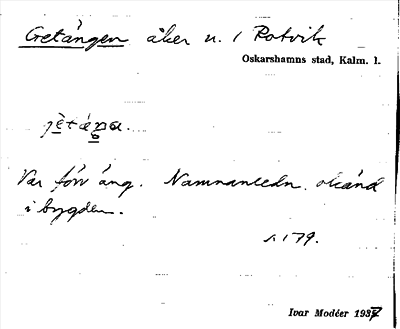 Getängen åker n. 1 Rotvik
Oskarshamns stad, Kalm. l.
Var förr äng. Namnanledn. okänd
i bygden.
s. 179.
Ivar Modéer 1937